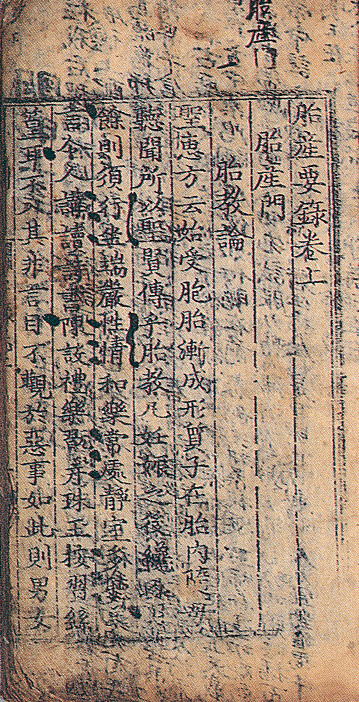 胎産門
胎産要錄卷上
胎産門
胎教論
聖惠方云始受胞胎漸成形質子在胎內隨母
聽聞所以聖賢傳乎胎教凡妊娠之後纔
餘則須行坐端嚴性情和樂常處靜室多
令人講讀詩書陳說禮樂
耳不入其非言目不觀於惡事如此則男女